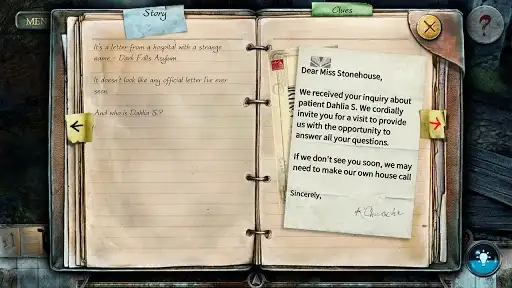 MEN
Story
Clues
?
It's a letter from a hospital with a strange
name - Dark Falls Asylum.
It doesn't look like any official letter I've ever
seen.
And who is Dahlia S.?
Dear Miss Stonehouse,
We received your inquiry about
patient Dahlia S. We cordially
invite you for a visit to provide
us with the opportunity to
answer all your questions.
If we don't see you soon, we may
need to make our own house call
Sincerely,